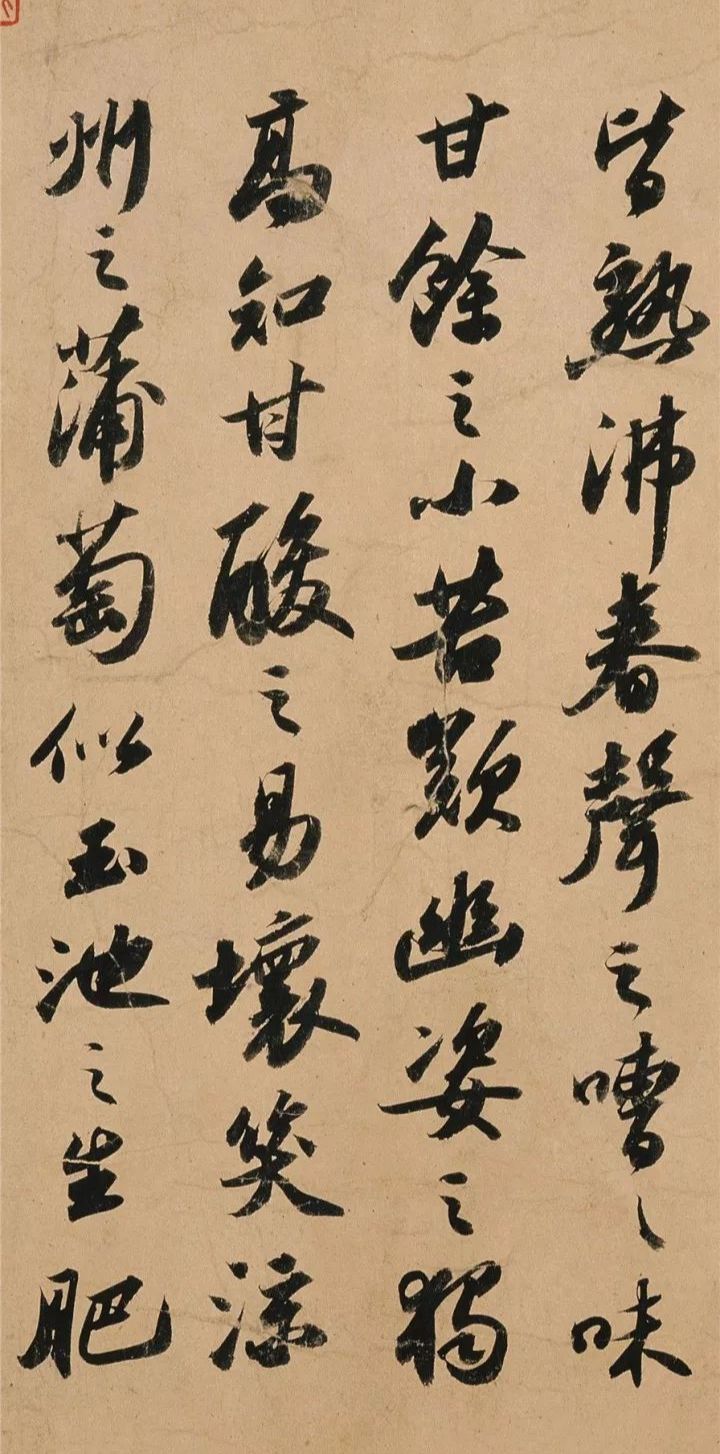 皆熟沸舂聲之嘈〻味
甘餘之小苦歎幽姿之獨
高知甘酸之易壞笑涼
州之蒲萄似玉池之生肥